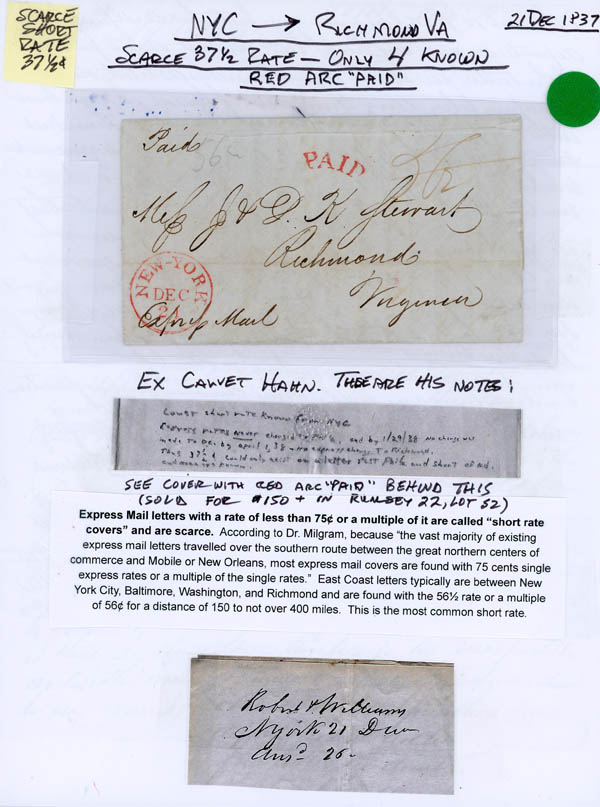 SCARCE
SHORT
RATE
37½¢
NYC → RICHMOND VA
21 DEC 1837
SCARCE 37½ RATE – ONLY 4 KNOWN
RED ARC "PAID"
Paid
56
PAID
Mess J & D. K. Stewart
Richmond
Virginia
NEW-YORK
DEC
21
Express Mail
EX CALVET HAHN. THESE ARE HIS NOTES:
Lowest short rate known from NYC
Express rates never charged to Phila, and by 1/29/38 no charge was
made to DC. by April 1, 38 – no express charge to Richmond.
Thus 37½ ¢ could only exist on a letter past Phila and short of
known.
SEE COVER WITH RED ARC "PAID" BEHIND THIS
(SOLD FOR $150+ IN RUMSEY 22, LOT 52)
Express Mail letters with a rate of less than 75¢ or a multiple of it are called “short rate
covers” and are scarce. According to Dr. Milgram, because “the vast majority of existing
express mail letters travelled over the southern route between the great northern centers of
commerce and Mobile or New Orleans, most express mail covers are found with 75 cents single
express rates or a multiple of the single rates.” East Coast letters typically are between New
York City, Baltimore, Washington, and Richmond and are found with the 56½ rate or a multiple
of 56¢ for a distance of 150 to not over 400 miles. This is the most common short rate.
Robert & Williams
NYork 21 Decr
Ansd 26